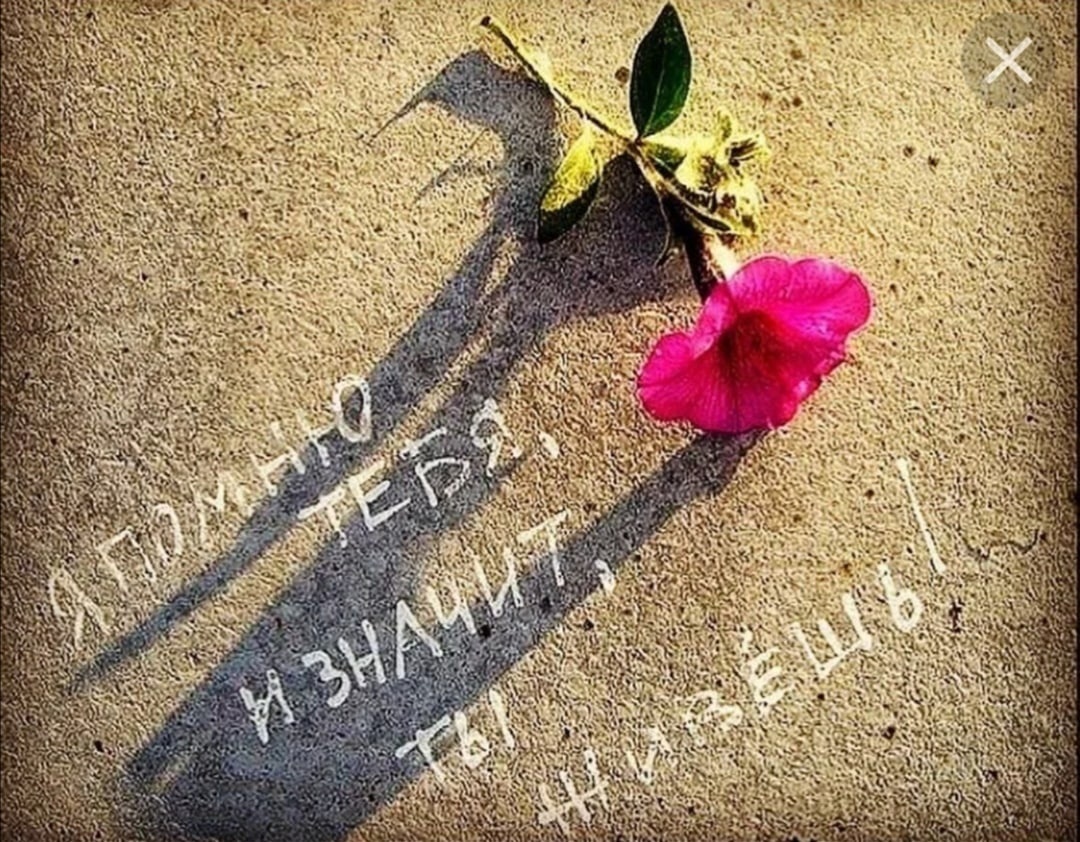 Я ПОМНЮ
ТЕБЯ,
И ЗНАЧИТ,
ТЫ
ЖИВЁШЬ!